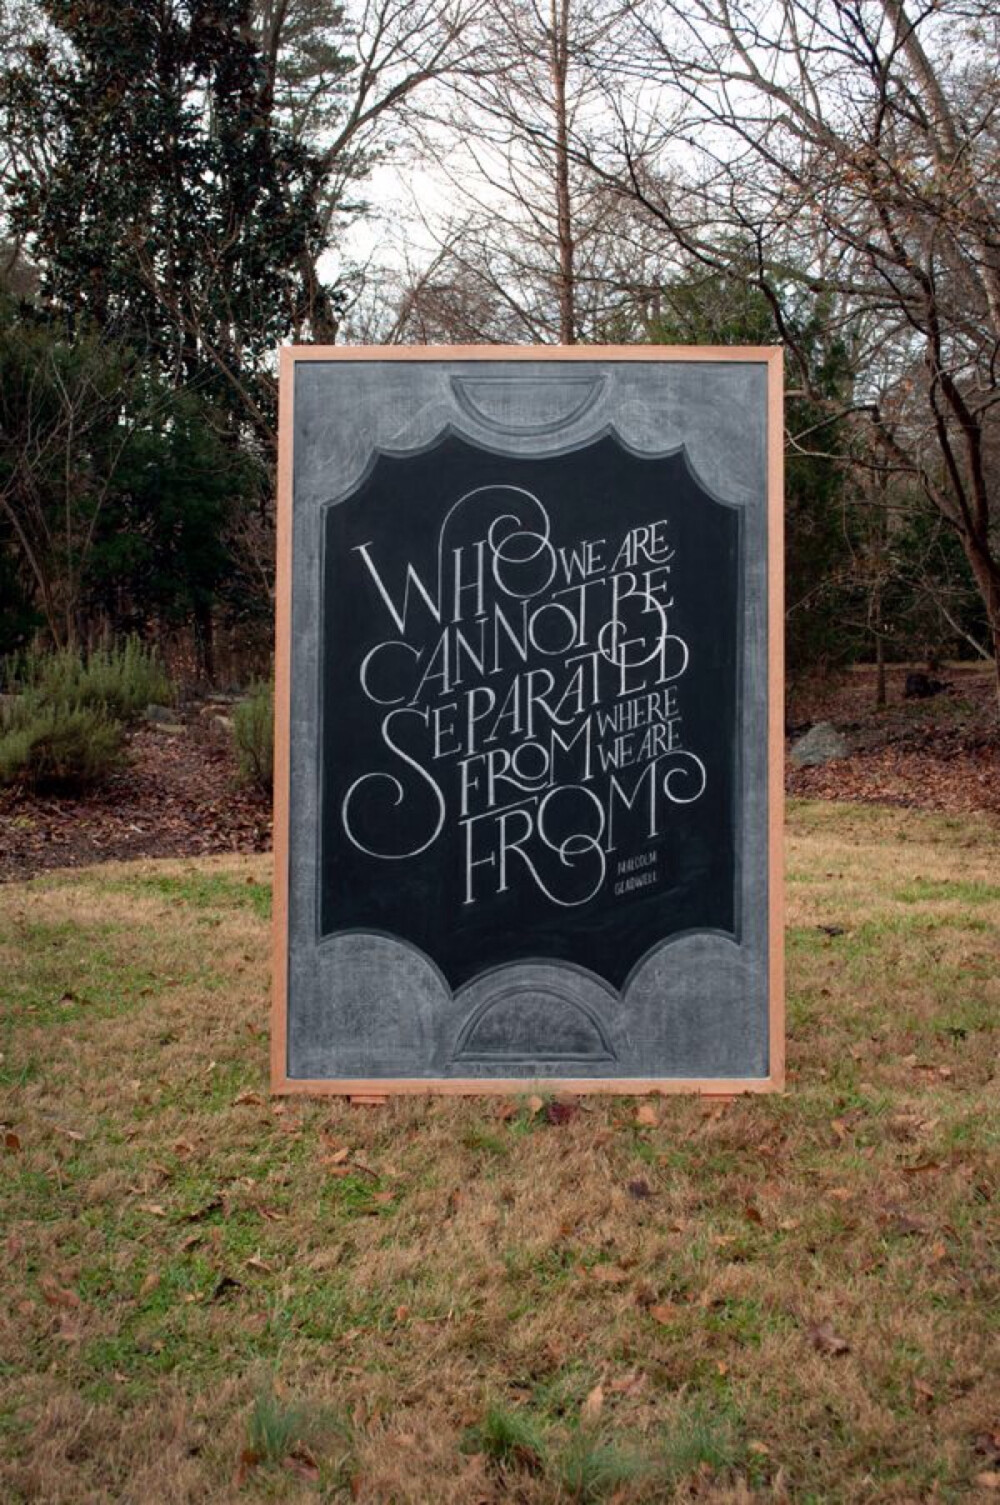 WHO WE ARE
CANNOT BE
SEPARATED
FROM WHERE
WE ARE
FROM
MALCOLM
GLADWELL